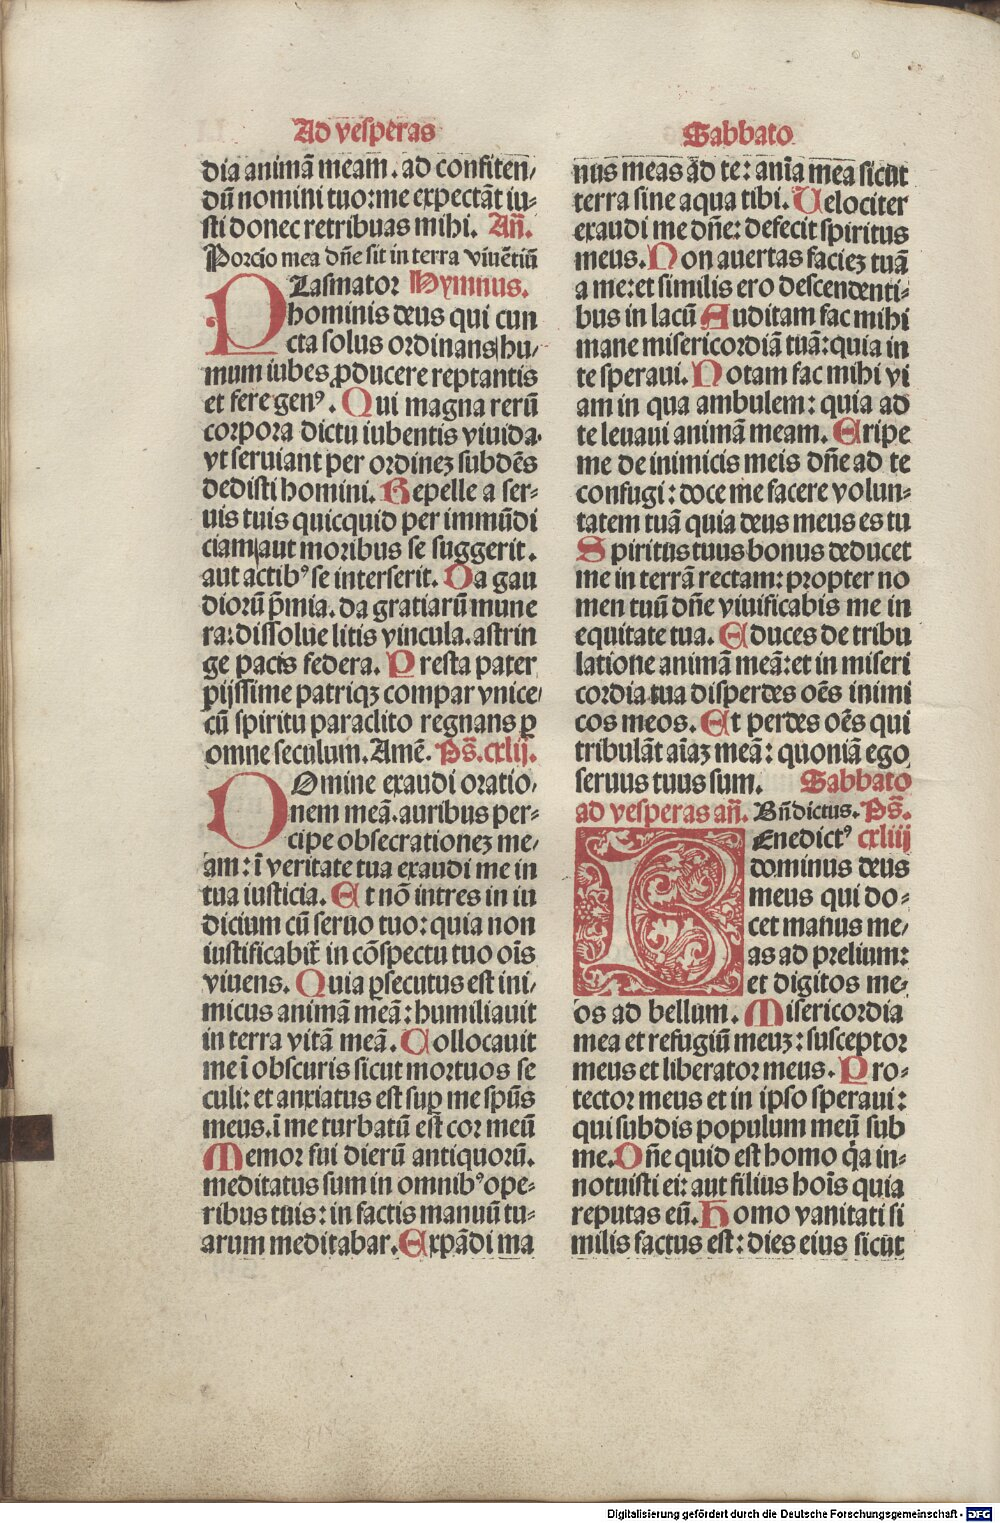 Ad vesperas
dia animā meam. ad confiten/
dū nomini tuo: me expectāt iu-
sti donec retribuas mihi. Añ.
Porcio mea dñe sit in terra viuētiū
PLasmator Hymnus.
hominis deus qui cun
cta solus ordinans hu/
mum iubes ꝓducere reptantis
et fere genꝰ. Qui magna rerū
corpora dictu iubentis viuida.
vt seruiant per ordineꝫ subdēs
dedisti homini. Repelle a ser-
uis tuis quicquid per immūdi
ciam aut moribus se suggerit.
aut actibꝰ se interserit. Da gau
diorū p̄mia. da gratiarū mune
ra: dissolue litis vincula. astrin
ge pacis federa. Presta pater
pijssime patriqꝫ compar vnice/
cū spiritu paraclito regnans ꝑ
omne seculum. Amē. Ps̄. cxlij.
DOmine exaudi oratio/
nem meā. auribus per-
cipe obsecrationeꝫ me/
am: ī veritate tua exaudi me in
tua iusticia. Et nō intres in iu
dicium cū seruo tuo: quia non
iustificabit᷑ in cōspectu tuo oīs
viuens. Quia ꝑsecutus est ini/
micus animā meā: humiliauit
in terra vitā meā. Collocauit
me ī obscuris sicut mortuos se
culi: et anxiatus est suꝑ me spūs
meus. ī me turbatū est cor meū
Memor fui dierū antiquorū.
meditatus sum in omnibꝰ ope-
ribus tuis: in factis manuū tu-
arum meditabar. Expādi ma
Sabbato
nus meas ad te: anīa mea sicut
terra sine aqua tibi. Uelociter
exaudi me dñe: defecit spiritus
meus. Non auertas facieꝫ tuā
a me: et similis ero descendenti-
bus in lacū Auditam fac mihi
mane misericordiā tuā: quia in
te speraui. Notam fac mihi vi
am in qua ambulem: quia ad
te leuaui animā meam. Eripe
me de inimicis meis dñe ad te
confugi: doce me facere volun-
tatem tuā quia deus meus es tu
Spiritus tuus bonus deducet
me in terrā rectam: propter no
men tuū dñe viuificabis me in
equitate tua. Educes de tribu
latione animā meā: et in miseri
cordia tua disperdes oēs inimi
cos meos. Et perdes oēs qui
tribulāt aīaꝫ meā: quoniā ego
seruus tuus sum. Sabbato
ad vesperas añ. Bñdictus. Ps̄.
BEnedictꝰ cxliij
dominus deus
meus qui do-
cet manus me/
as ad prelium:
et digitos me-
os ad bellum. Misericordia
mea et refugiū meuꝫ: susceptor
meus et liberator meus. Pro-
tector meus et in ipso speraui:
qui subdis populum meū sub
me. Dñe quid est homo q̄a in-
notuisti ei: aut filius hoīs quia
reputas eū. Homo vanitati si
milis factus est: dies eius sicut
Digitalisierung gefördert durch die Deutsche Forschungsgemeinschaft - DFG